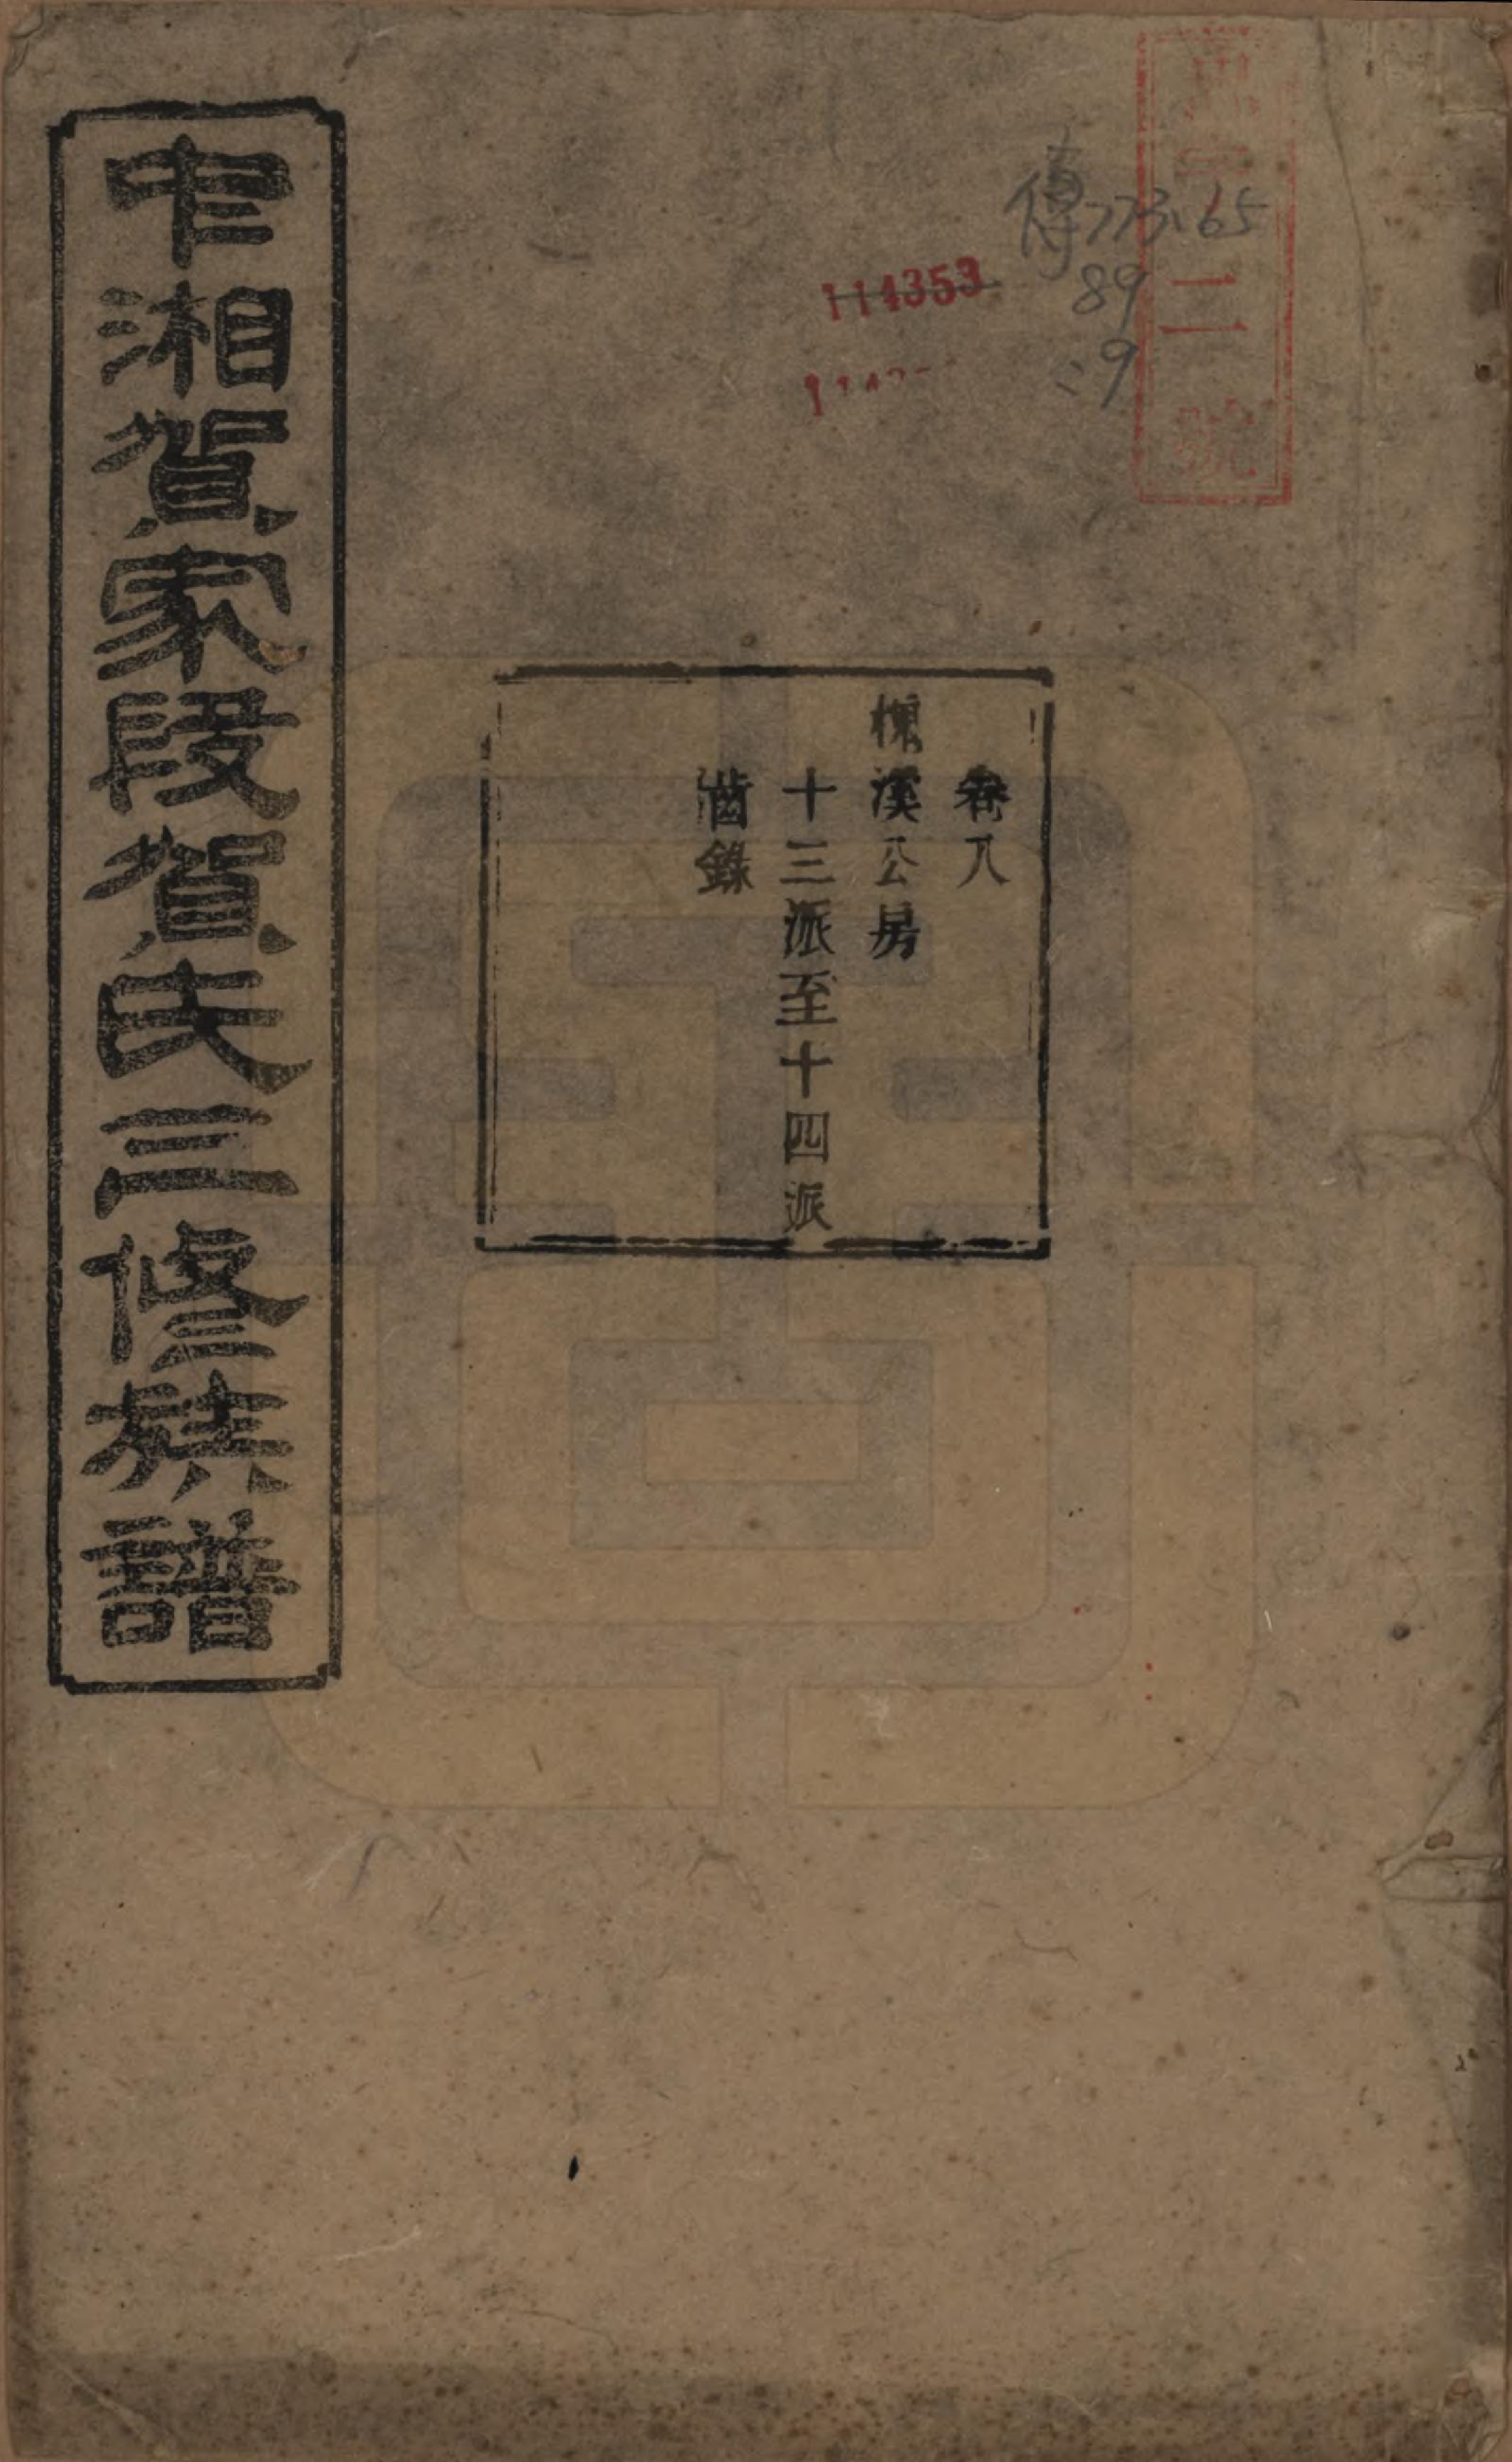 中湘賀家段賀氏三修族譜
卷八
溪公房
十三派至十四派
齒錄
字二號
傳773.65
89
:9
114353